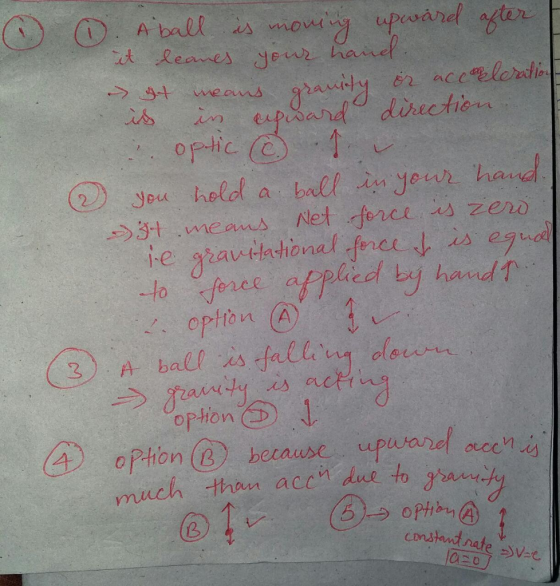 ① ① A ball is moving upward after
it leaves your hand.
→ It means gravity or acceleration
is in upward direction
∴ optic Ⓒ ↑ ✓
② you hold a ball in your hand.
⇒ It means Net force is zero
i.e gravitational force ↓ is equal
to force applied by hand ↑
∴ option Ⓐ ↕ ✓
③ A ball is falling down.
⇒ gravity is acting
option Ⓓ ↓
④ option Ⓑ because upward accⁿ is
much than accⁿ due to gravity
Ⓑ ↕ ✓ ⑤ → option Ⓐ ↕
constant rate ⇒ v=c
a=0